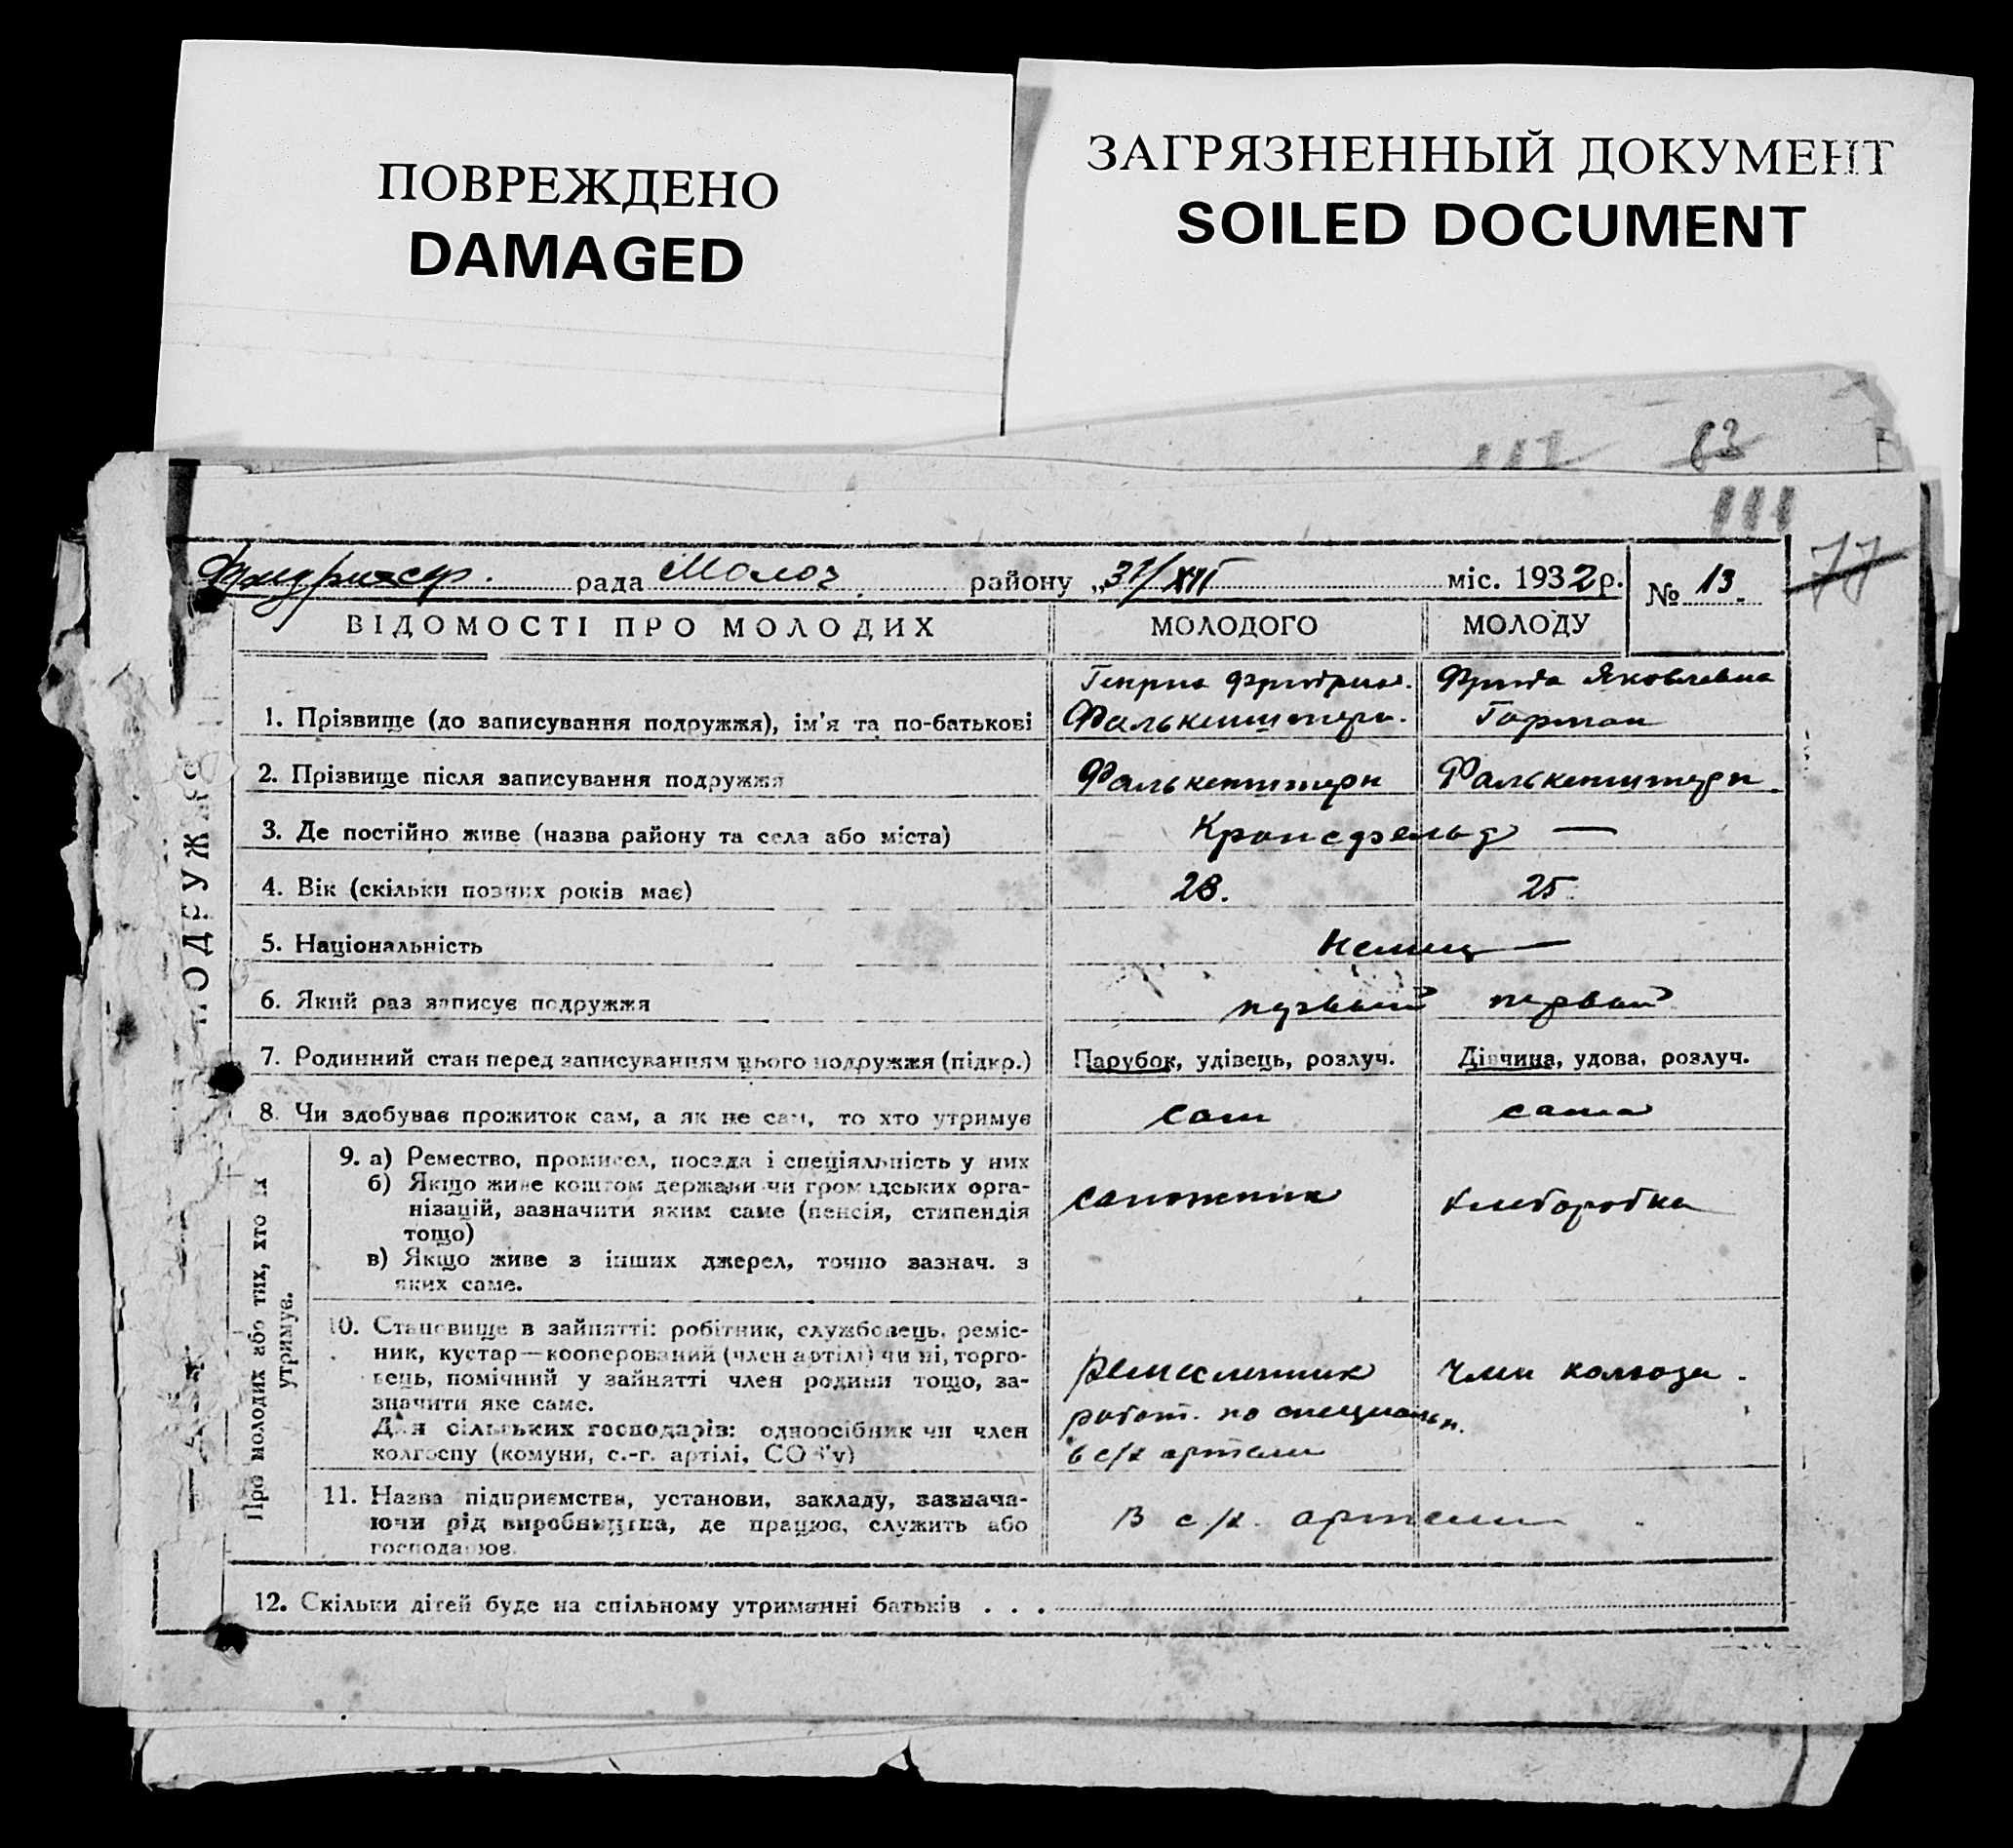 ПОВРЕЖДЕНО
DAMAGED
ЗАГРЯЗНЕННЫЙ ДОКУМЕНТ
SOILED DOCUMENT
111 83
111
77
рада Молоч. району „31/XII міс. 1932 р. № 13.
ВІДОМОСТІ ПРО МОЛОДИХ МОЛОДОГО МОЛОДУ
Генрих Фридрих. Фрида Яковлевна
1. Прізвище (до записування подружжя), ім'я та по-батькові Фалькенштерн. Герман
2. Прізвище після записування подружжя Фалькенштерн Фалькенштерн
3. Де постійно живе (назва району та села або міста) Кронсфельд —
4. Вік (скільки повних років має) 28. 25
5. Національність немец —
6. Який раз записує подружжя первый первый
7. Родинний стан перед записуванням цього подружжя (підкр.) Парубок, удівець, розлуч. Дівчина, удова, розлуч.
8. Чи здобував прожиток сам, а як не сам, то хто утримує сам сама
ПОДРУЖЖЯ
Про молодих або тих, хто їх
утримує.
9. а) Ремество, промисел, посада і спеціяльність у них
б) Якщо живе коштом держави чи громадських орга-
нізацій, зазначити яким саме (пенсія, стипендія
тощо)
в) Якщо живе з інших джерел, точно зазнач. з
яких саме.
сапожник хлеборобка
10. Становище в зайнятті: робітник, службовець, реміс-
ник, кустар—кооперований (член артілі) чи ні, торго-
вець, помічний у зайнятті член родини тощо, за-
значити яке саме.
Для сільських господарів: одноосібник чи член
колгоспу (комуни, с.-г. артілі, СОЗ'у)
ремесленник член колхоза.
работ. по специальн.
в с/х артели
11. Назва підприємства, установи, закладу, зазнача-
ючи рід виробництва, де працює, служить або
господарює.
В с/х. артели
12. Скільки дітей буде на спільному утриманні батьків . . .